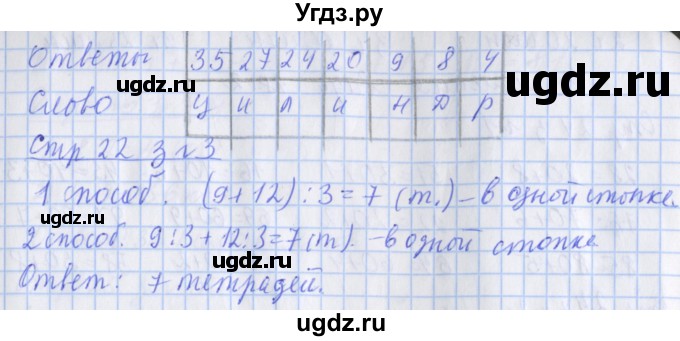 Угдз.ру
Ответы 35 27 24 20 9 8 4
Слово Ц И Л И Н Д Р
ugdz.ru ugdz.ru ugdz.ru
Стр 22 з №3
1 способ. (9+12):3=7 (т.) – в одной стопке.
2 способ. 9:3+12:3=7(т). – в одной стопке.
ugdz.ru ugdz.ru
Ответ: 7 тетрадей.
ugdz.ru